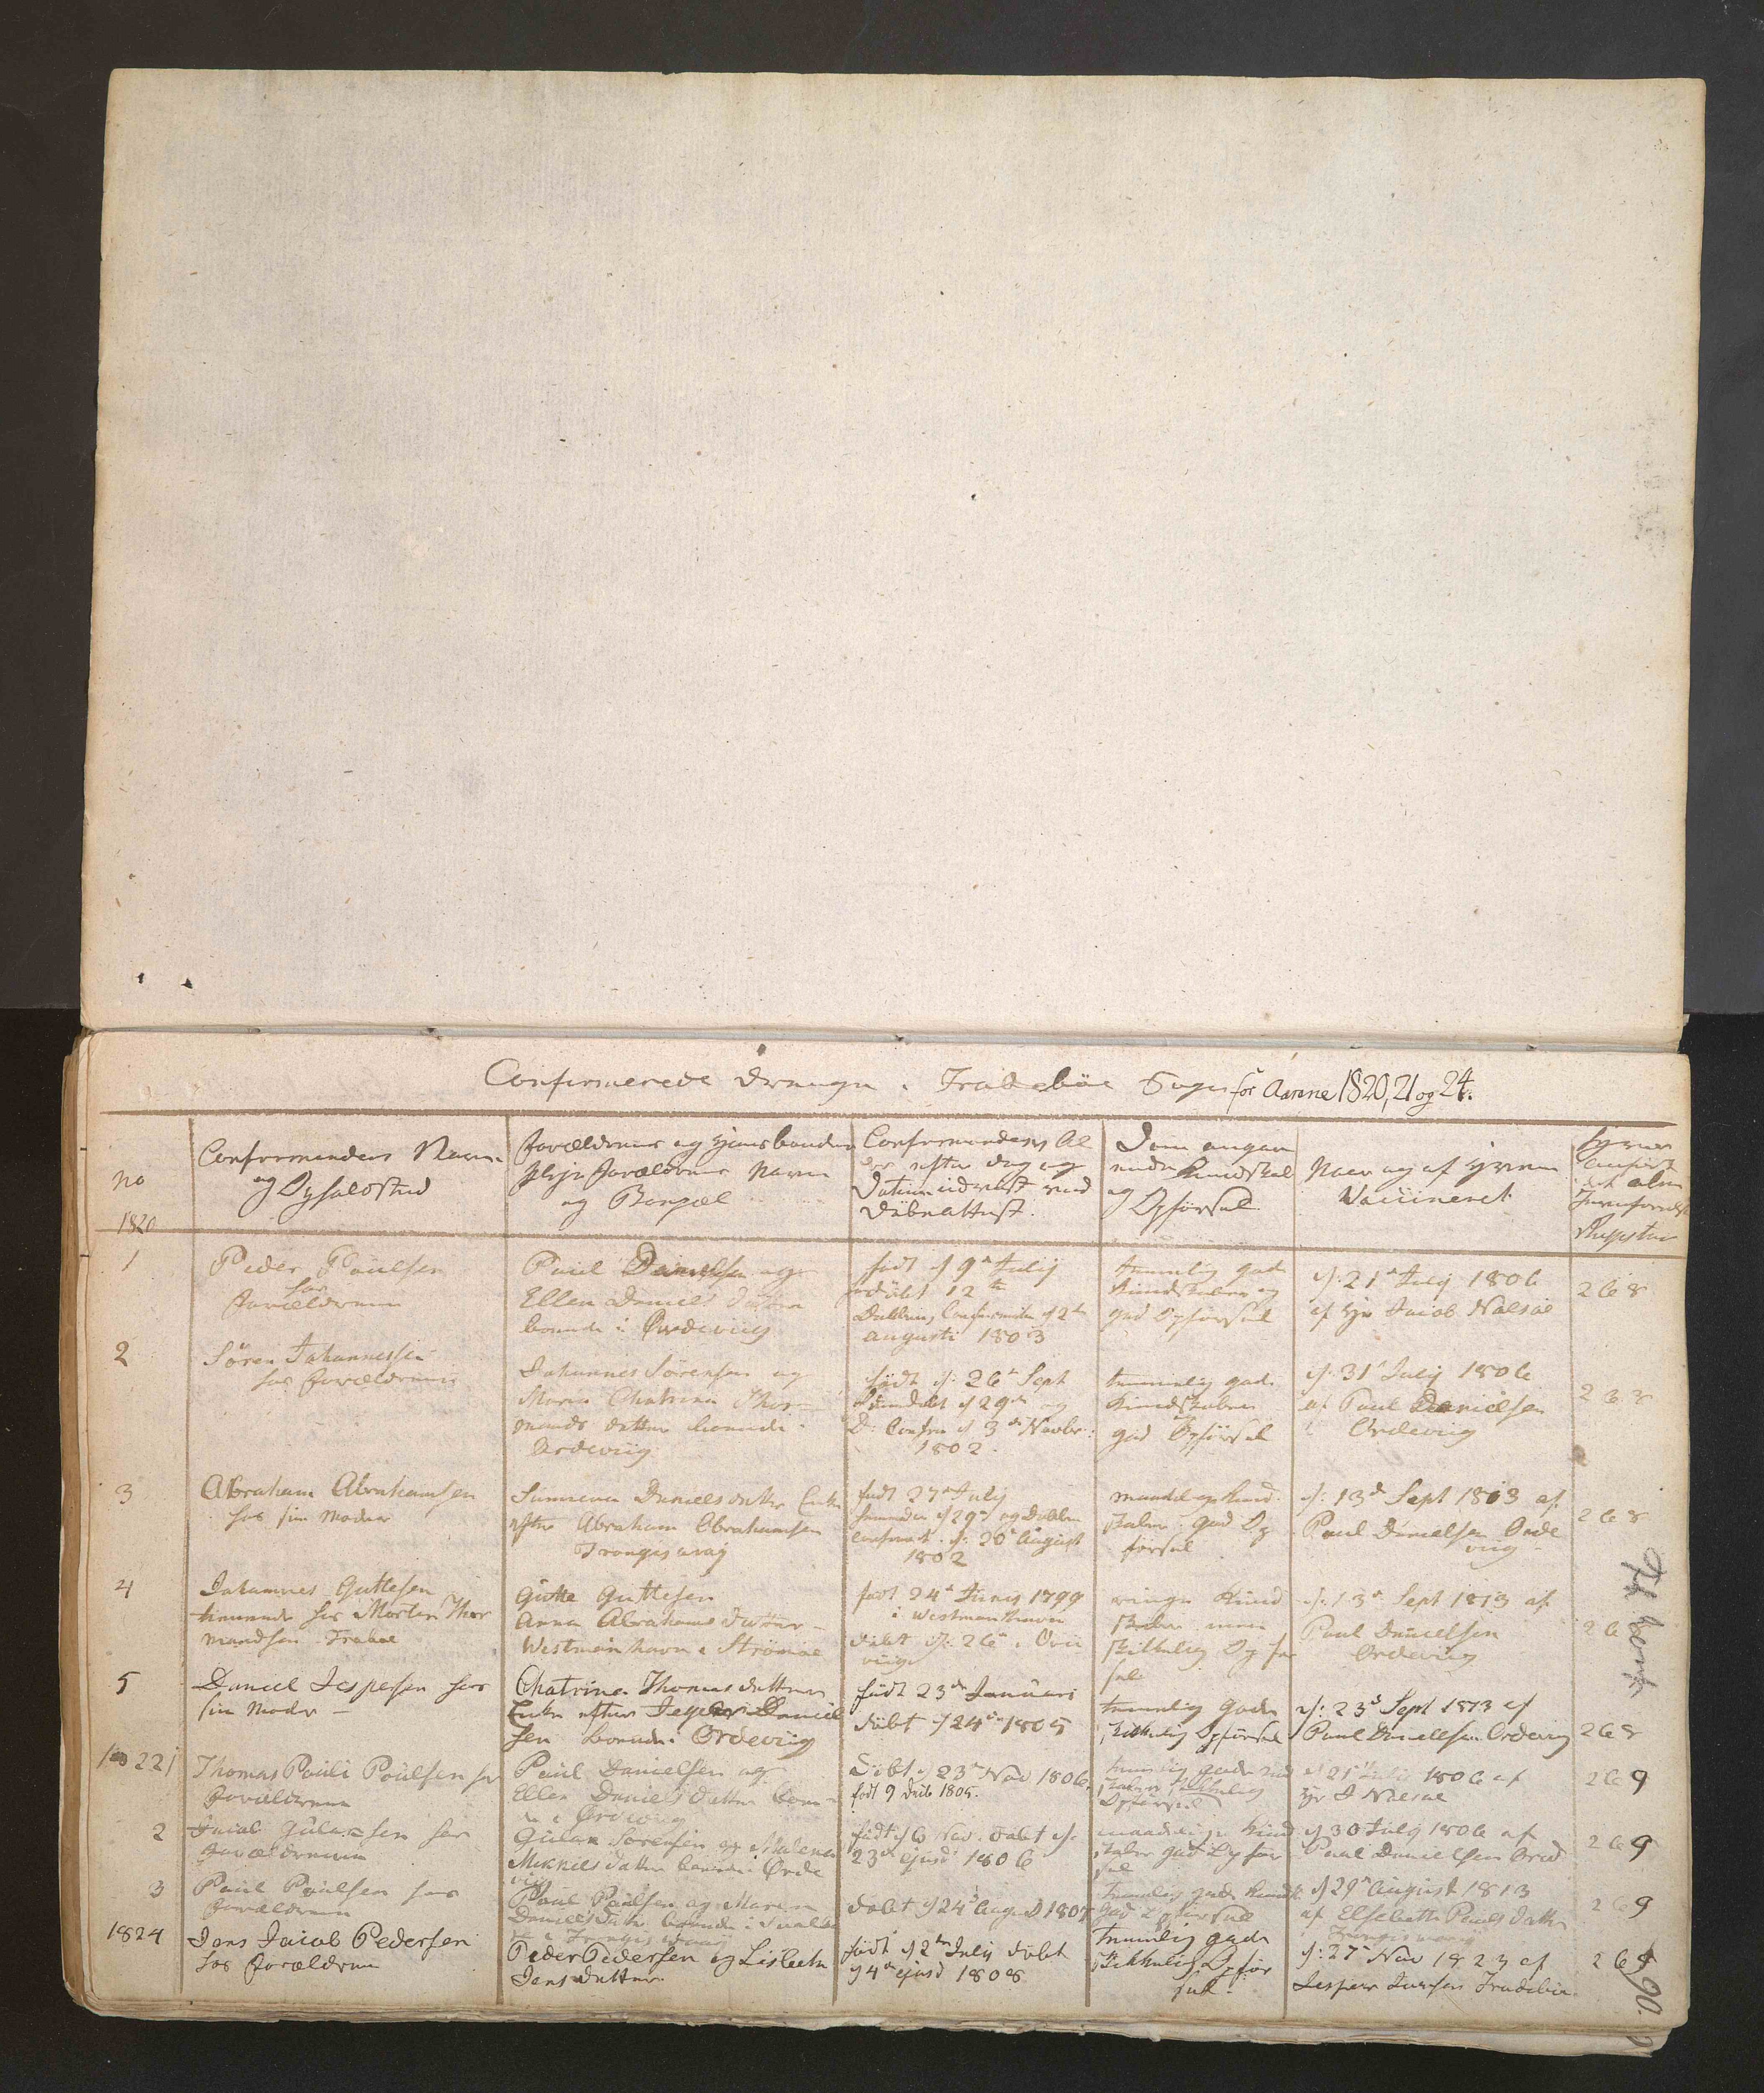 Confirmerede Drenge i Frodebøe Sogn for Aarene 1820, 21 og 24.
No
1820
Confirmandens Navn
og Opholdsted
Forældrenes og Huusbonden
Pleje Forældrenes Navn
og Bopæl
Confirmandens Al
der efter dag og
Datum udviist ved
Døbeattest.
Dom angaa
ende Kundskab
og Opførsel
Naar og af hvem
Vaccineret
1
Peder Poulsen
hos
Forældrene
Poul Danielsen og
Ellen Daniels Datter
boende i Ordeviig
født d 9de Julij
døbt 12te
Augusti 1803
temmelig gode
Kundskaber og
god Opførsel
d: 21de Julij 1806
af Hr Jacob Nolsøe
268
2
Søren Johannessen
hos Forældrene
Johannes Sørensen og
Maria Chatrina Thor
mands datter boende i
Ordeviig
født d: 26de Sept
d 29de og
D: Confir d 3de Novbr
1802.
temmelig gode
Kundskaber
god Opførsel
d: 31 Julij 1806
af Paul Danielsen
i Ordeviig
268
3
Abraham Abrahamsen
hos sin Moder
Sunneva Daniels datter Enke
efter Abraham Abrahamsen
Trongisvaag
født 27de Julij
d 29de og Daaben
confirmert d: 20de August
1802
maadelige Kund
skaber god Op
førsel
d: 13de Sept 1813 af
Paul Danielsen Orde
viig
268
4
Johannes Guttesen
tienende hos Morten Thor
mandsen Frodbøe
Gutte Guttesen
Anna Abrahams Datter
Westmanhavn i Strømøe
født 24de Junij 1799
i Westmanhavn
døbt d: 26de i Qvi
viig
ringe Kund
skaber men
skikkelig Opfør
sel
d: 13de Sept 1813 af
Paul Danielsen
Ordeviig
26
5
Daniel Jespersen hos
sin Moder
Chatrina Thomas datter
Enke efter Jesper Daniel
sen boende i Ordeviig
født 23de Januari
døbt d 24de 1805
temmelig gode
skikkelig Opførsel
d: 23de Sept 1813 af
Paul Danielsen Ordeviig
268
1
Thomas Pauli Poulsen hos
Forældrene
Paul Danielsen og
Ellen Daniels Datter boen
de i Ordeviig
Døbt d 23de Nov 1806
født 9 Decb 1805.
temmelig gode
skikkelig
Opførsel
d 21de Julij 1806 af
Hr J Nolsøe
269
2
Jacob Gulaksen hos
Forældrene
Gulak Sørensen og Malena
Mikkels datter boende i Orde
viig
født d 6 Nov. døbt d.
23de ejusd 1806
maadelige Kund
skaber god Opfør
sel
d 30 Julij 1806 af
Paul Danielsen Ord
269
3
Paul Poulsen hos
Forældrene
Paul Poulsen og Maren
Daniels Datter boende i
døbt d 24de August 1807
temmelig gode Kundsk
god Opførsel
d 29de August 1813
af Elsebeth Pauls Datter
Trongisvaag
269
1824
Jens Jacob Pedersen
hos Forældrene
Peder Pedersen og Lisbeth
Jens datter
født d 2den Julij døbt
d 4de ejusd 1808
temmelig gode
skikkelig Opfør
sel
d: 27de Nov 1823 af
Jesper Frodebøe
269
90.